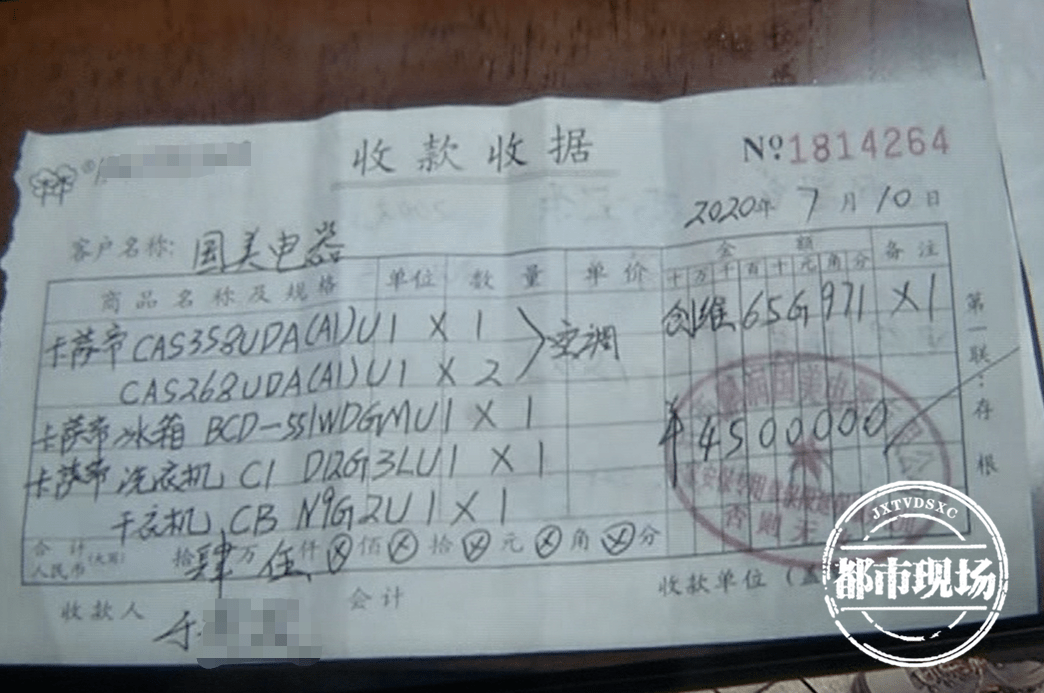 收款收据
№1814264
2020年 7月 10日
客户名称: 国美电器
商品名称及规格 单位 数量 单价 金额 备注
十万千百十元角分
卡萨帝CAS358UDA(A1)U1 X 1 空调 创维65G971 X1
CAS268UDA(A1)U1 X 2
卡萨帝冰箱 BCD-551WDGMU1 X 1 ¥4500000
卡萨帝洗衣机 C1 D12G3LU1 X 1
干衣机 CB N9G2U1 X 1
合计人民币(大写) 拾肆万伍仟⊗佰⊗拾⊗元⊗角⊗分
收款人 会计 收款单位(盖
第一联:存根
否则无
JXTVDSXC
都市现场